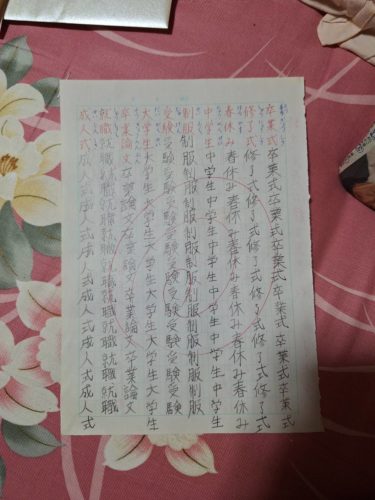 卒業式卒業式卒業式卒業式卒業式卒業式
修了式修了式修了式修了式修了式修了式
春休み春休み春休み春休み春休み春休み
中学生中学生中学生中学生中学生中学生
制服制服制服制服制服制服制服制服制服
受験受験受験受験受験受験受験受験受験
大学生大学生大学生大学生大学生大学生
卒業論文卒業論文卒業論文卒業論文卒業論文
就職就職就職就職就職就職就職就職就職
成人式成人式成人式成人式成人式成人式